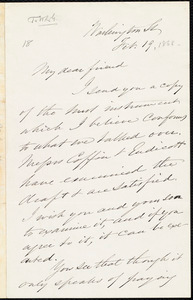 18
Washington St.
Feb. 19,
My dear friend
I send you a copy
of the trust instrument
which I believe conforms
to what we talked over.
Messrs Coffin & Endicott
have examined the
draft & are satisfied.
I wish you and your son
to examine it, and if you
agree to it, it can be exe-
cuted.
You see that though it
only speaks of paying